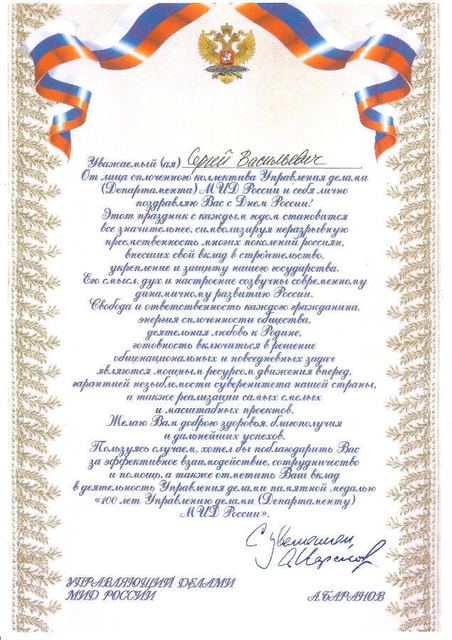 Уважаемый (ая) Сергей Васильевич
От лица сплоченного коллектива Управления делами
(Департамента) МИД России и себя лично
поздравляю Вас с Днем России!
Этот праздник с каждым годом становится
все значительнее, символизируя неразрывную
преемственность многих поколений россиян,
внесших свой вклад в строительство,
укрепление и защиту нашего государства.
Его смысл, дух и настроение созвучны современному
динамичному развитию России.
Свобода и ответственность каждого гражданина,
энергия сплоченности общества,
деятельная любовь к Родине,
готовность включиться в решение
общенациональных и повседневных задач
являются мощным ресурсом движения вперед,
гарантией незыблемости суверенитета нашей страны,
а также реализации самых смелых
и масштабных проектов.
Желаю Вам доброго здоровья, благополучия
и дальнейших успехов.
Пользуясь случаем, хотел бы поблагодарить Вас
за эффективное взаимодействие, сотрудничество
и помощь, а также отметить Ваш вклад
в деятельность Управления делами памятной медалью
«100 лет Управлению делами (Департаменту)
МИД России».
С уважением,
УПРАВЛЯЮЩИЙ ДЕЛАМИ
МИД РОССИИ А.БАРАНОВ